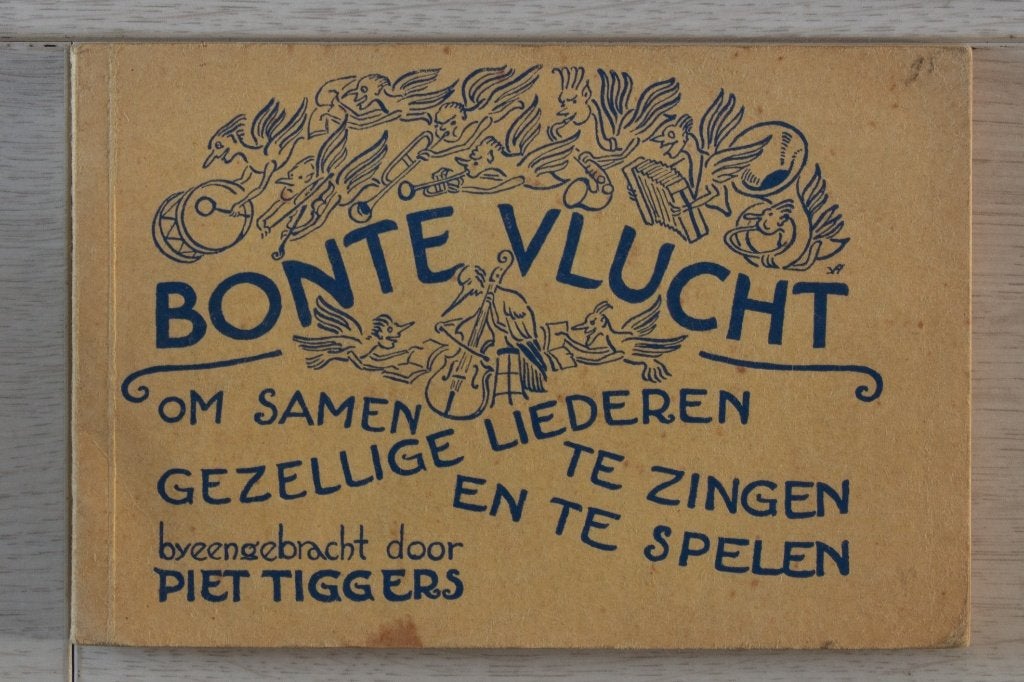 BONTE VLUCHT
OM SAMEN
GEZELLIGE LIEDEREN
TE ZINGEN
EN TE SPELEN
byeengebracht door
PIET TIGGERS